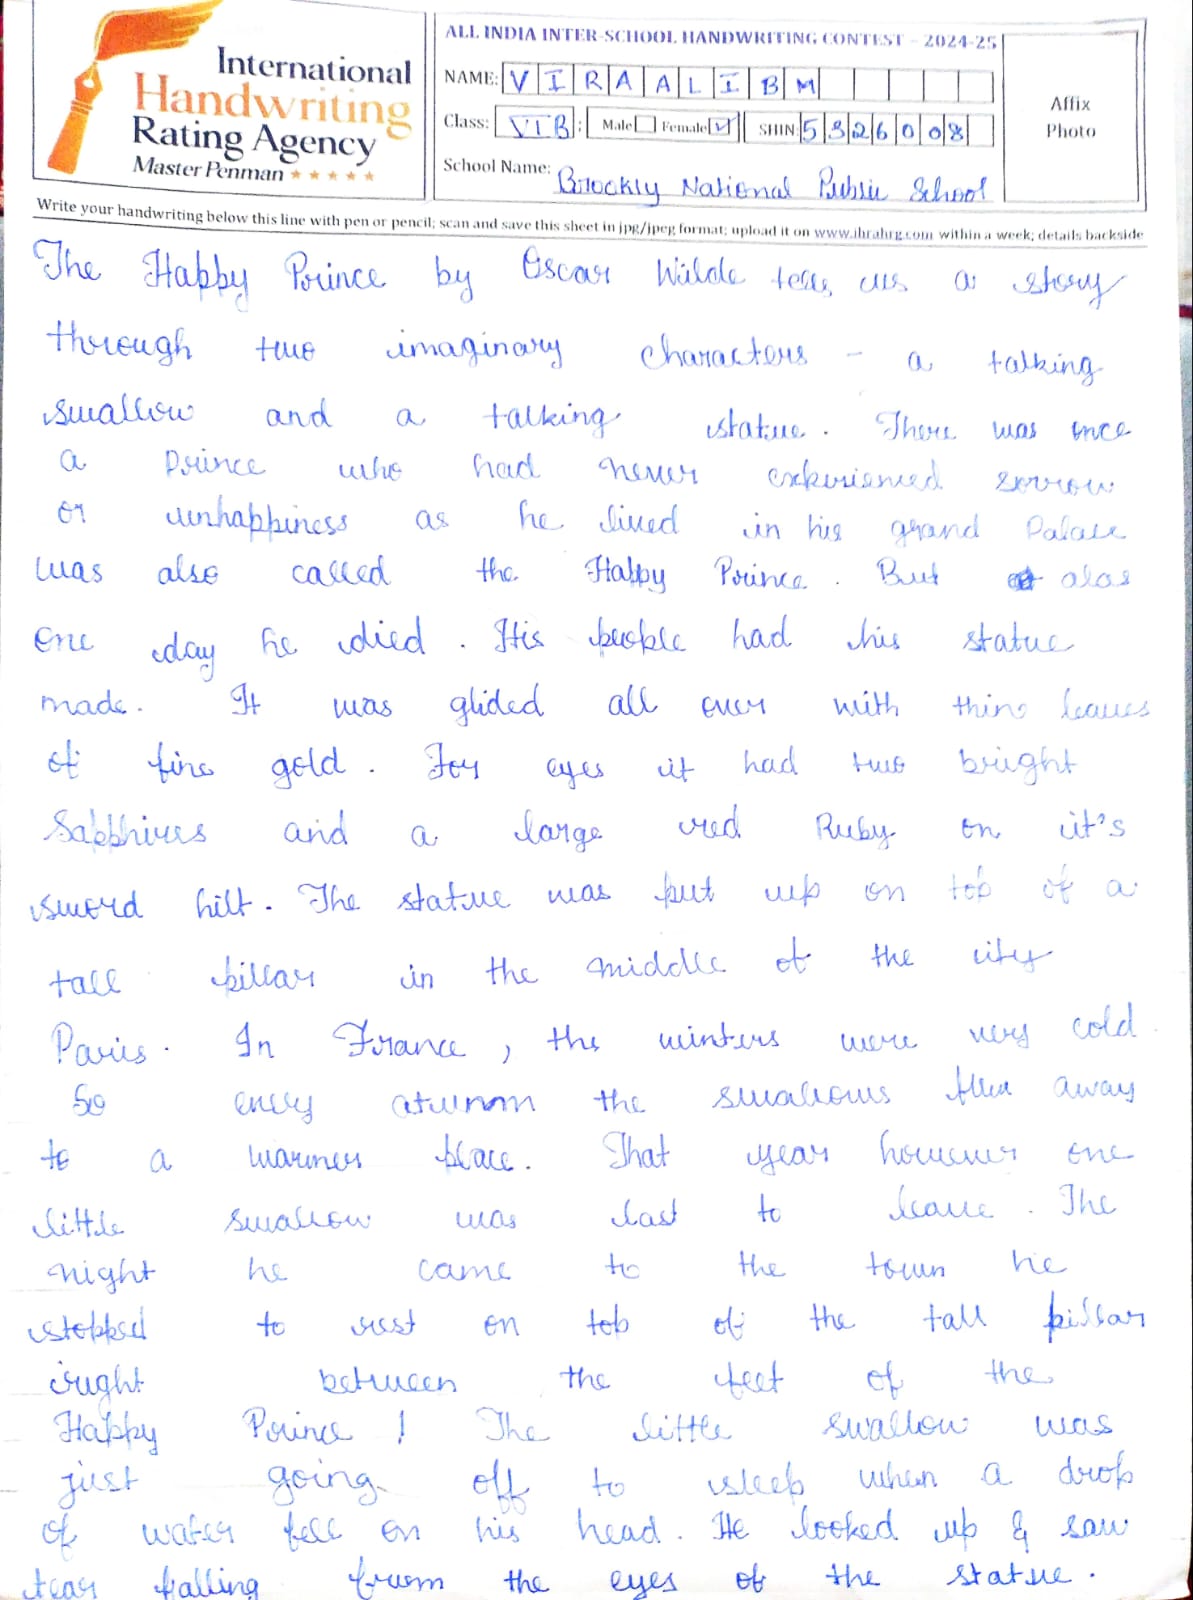 International
Handwriting
Rating Agency
Master Penman
ALL INDIA INTER-SCHOOL HANDWRITING CONTEST - 2024-25
NAME: VIRAALI BM
Class: VIB : Male Female ✓ SHIN: 5326008
School Name: Brockly National Public School
Affix
Photo
Write your handwriting below this line with pen or pencil; scan and save this sheet in jpg/jpeg format; upload it on www.ihrahrg.com within a week; details backside
The Happy Prince by Oscar Wilde tells us a story
through two imaginary characters - a talking
swallow and a talking statue. There was once
a prince who had never experienced sorrow
or unhappiness as he lived in his grand Palace
was also called the Happy Prince. But alas
one day he died. His people had his statue
made. It was glided all over with thins leaves
of fine gold. For eyes it had two bright
Sapphires and a large red Ruby on it's
sword hilt. The statue was put up on top of a
tall pillar in the middle of the city
Paris. In France, the winters were very cold.
So every atumnm the swallows flew away
to a warmer place. That year however one
little swallow was last to leave. The
night he came to the town he
stopped to rest on top of the tall pillar
right between the feet of the
Happy Prince! The little swallow was
just going off to sleep when a drop
of water fell on his head. He looked up & saw
tear falling from the eyes of the statue.